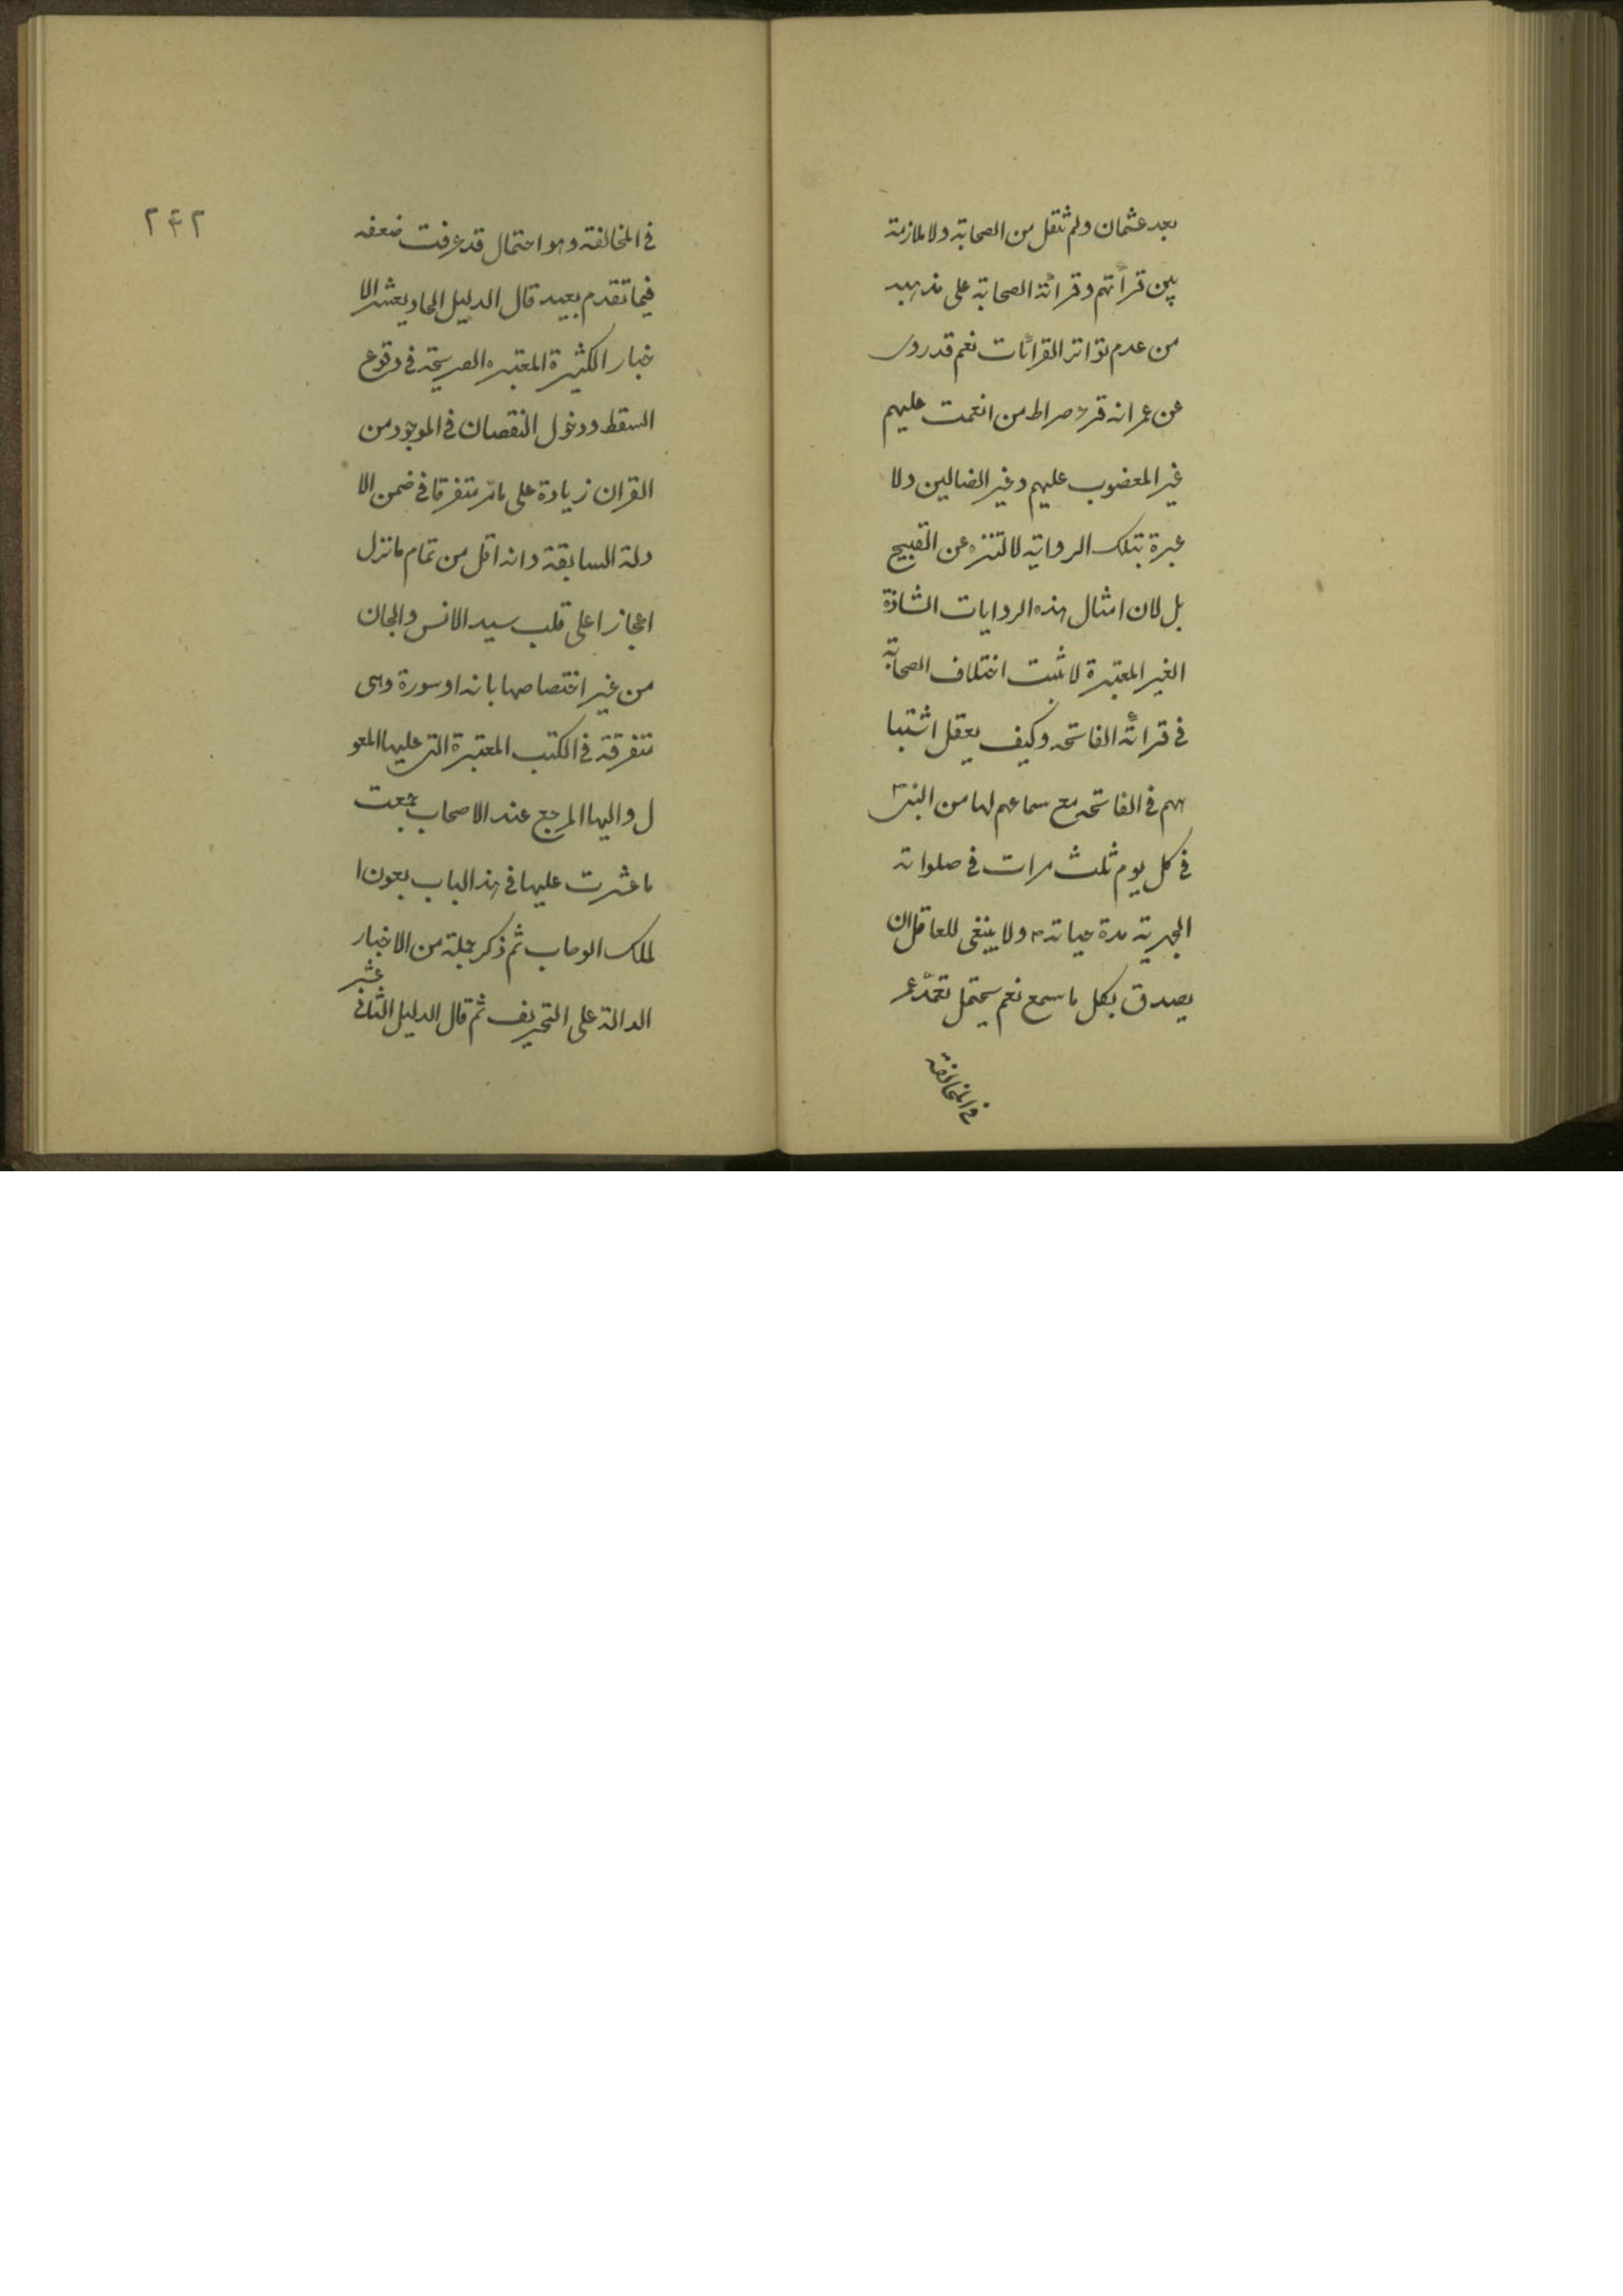 بعد عثمان ولم تنقل من الصحابة ولا ملازمة
بين قرأتهم وقرائة الصحابة على مذهبه
من عدم تواتر القرائات نعم قد روى
عن عمر انه قرء صراط من انعمت عليهم
غير المغضوب عليهم وغير الضالين ولا
عبرة بتلك الرواية لا لتنزه عن القبيح
بل لان امثال هذه الروايات الشاذة
الغير المعتبرة لا تثبت اختلاف الصحابة
في قرائة الفاتحه وكيف يعقل اشتبا
ههم في الفاتحه مع سماعهم لها من النبى
في كل يوم ثلث مرات في صلواته
الجهرية مدة حياته ولا ينبغى للعاقل ان
يصدق بكل ما سمع نعم يحتمل تعمد عمر
في المخالفة
٢٤٢
في المخالفة وهو احتمال قد عرفت ضعفه
فيما تقدم بعيد قال الدليل الحاديعشر الا
خبار الكثيرة المعتبره الصريحة في وقوع
السقط ودخول النقصان في الموجود من
القران زيادة على مامر متفرقا في ضمن الا
دلة السابقة وانه اقل من تمام مانزل
اعجازا على قلب سيد الانس والجان
من غير اختصاصها باية او سورة وهى
متفرقة في الكتب المعتبرة التى عليها المعو
ل واليها المرجع عند الاصحاب جمعت
ما عثرت عليها في هذا الباب بعون ا
لملك الوهاب ثم ذكر جملة من الاخبار
الدالة على التحريف ثم قال الدليل الثانى عشر